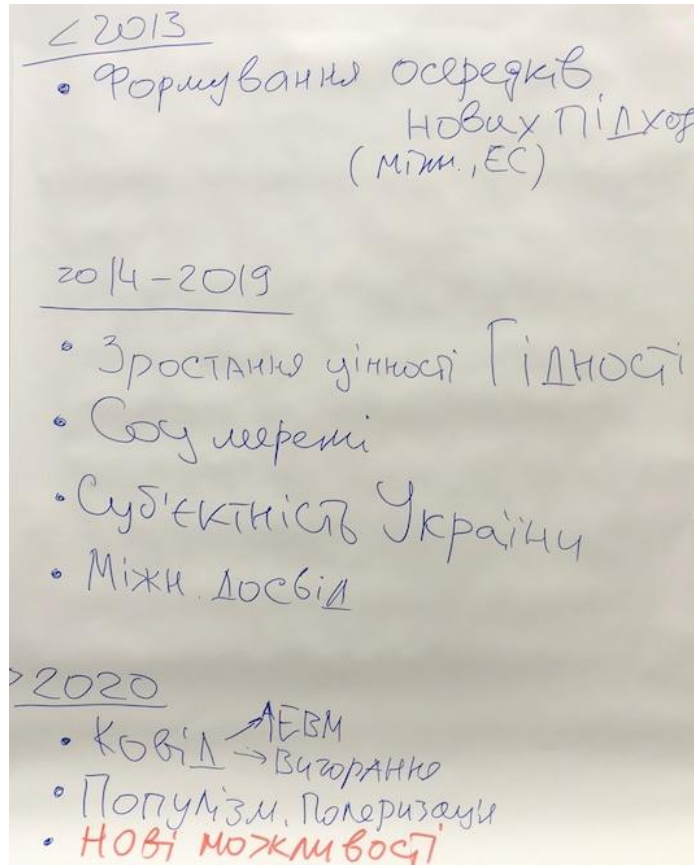 < 2013
• Формування осередків
нових підход
(міжн., ЕС)
2014-2019
• Зростання цінності Гідності
• Соц мережі
• Суб'єктність України
• Міжн. досвід
>2020
• Ковід ↗ ↑ЕВМ
→ Вигорання
• Популізм. Поляризаці
• Нові можливості